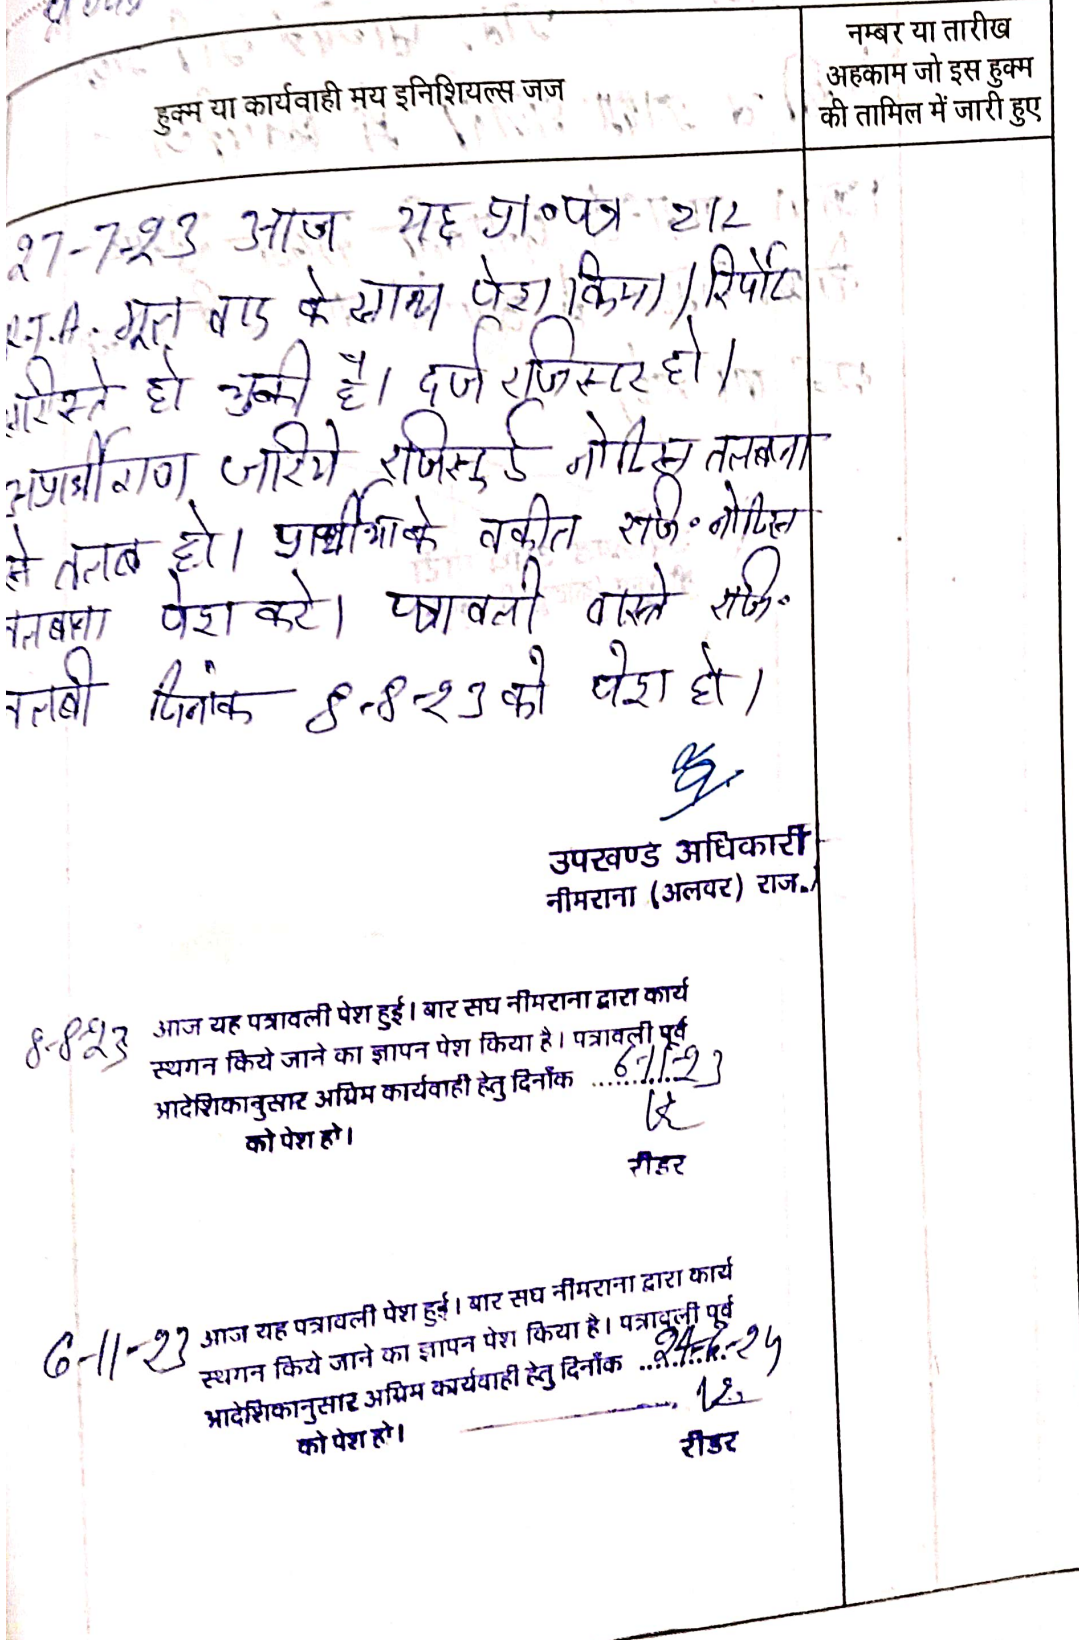 हुक्म या कार्यवाही मय इनिशियल्स जज
नम्बर या तारीख
अहकाम जो इस हुक्म
की तामिल में जारी हुए
27-7-23 आज यह प्रा०पत्र 212
R.T.A. मूल वाद के साथ पेश किया। रिपोर्ट
सरिस्ते हो चुकी है। दर्ज रजिस्टर हो।
अप्रार्थीगण जरिये रजिस्टर्ड नोटिस तलबाना
से तलब हो। प्रार्थीया के वकील रजि० नोटिस
तलबाना पेश करे। पत्रावली वास्ते रजि०
तलबी दिनांक 8-8-23 को पेश हो।
उपखण्ड अधिकारी
नीमराना (अलवर) राज.
8-8-23 आज यह पत्रावली पेश हुई। बार सघ नीमराना द्वारा कार्य
स्थगन किये जाने का ज्ञापन पेश किया है। पत्रावली पूर्व
आदेशिकानुसार अग्रिम कार्यवाही हेतु दिनाँक 6-11-23
को पेश हो।
रीडर
6-11-23 आज यह पत्रावली पेश हुई। बार सघ नीमराना द्वारा कार्य
स्थगन किये जाने का ज्ञापन पेश किया है। पत्रावली पूर्व
आदेशिकानुसार अग्रिम कार्यवाही हेतु दिनाँक
को पेश हो।
रीडर